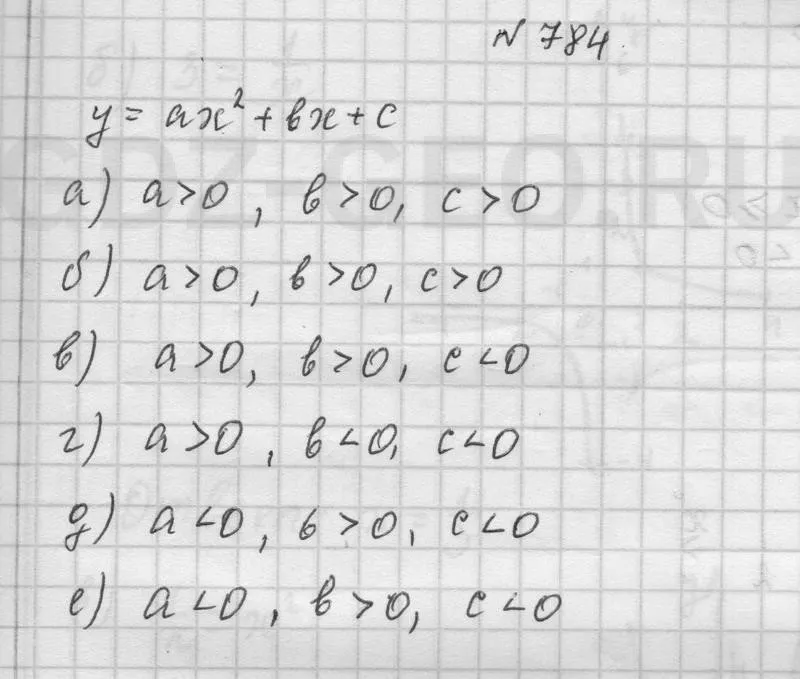 № 784
y = ax² + bx + c
а) a>0, b>0, c>0
б) a>0, b>0, c>0
в) a>0, b>0, c<0
г) a>0, b<0, c<0
д) a<0, b>0, c<0
е) a<0, b>0, c<0